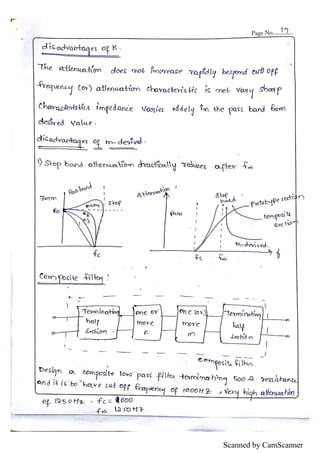 Page No. 17
disadvantages of K.
The attenuation does not increase rapidly beyond cutt off
frequency (or) attenuation characteristic is not vary sharp
Characteristics impedance varies widely in the pass band from
desired value.
disadvantages of m-derived.
1) Stop band attenuation drastically reduces after f∞
Passband
stop
Ro
fc
Attenuation
Pass
Stop
band
prototype section
composite
section
m-derived.
fc
f∞
f
Composite filter:
Terminating
half
section
one or
more
K
one (or)
more
m
Terminating
half
section
Composite filter.
Design a composite low pass filter terminating 500 Ω resistance
and it is to have cut off frequency of 1000 HZ, very high attenuation
of 1250 Hz. fc = 1000
f∞ 1250 HZ
Scanned by CamScanner